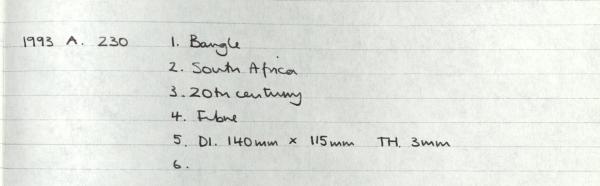 1993 A. 230 1. Bangle
2. South Africa
3. 20th century
4. Fibre
5. DI. 140mm × 115mm TH. 3mm
6.